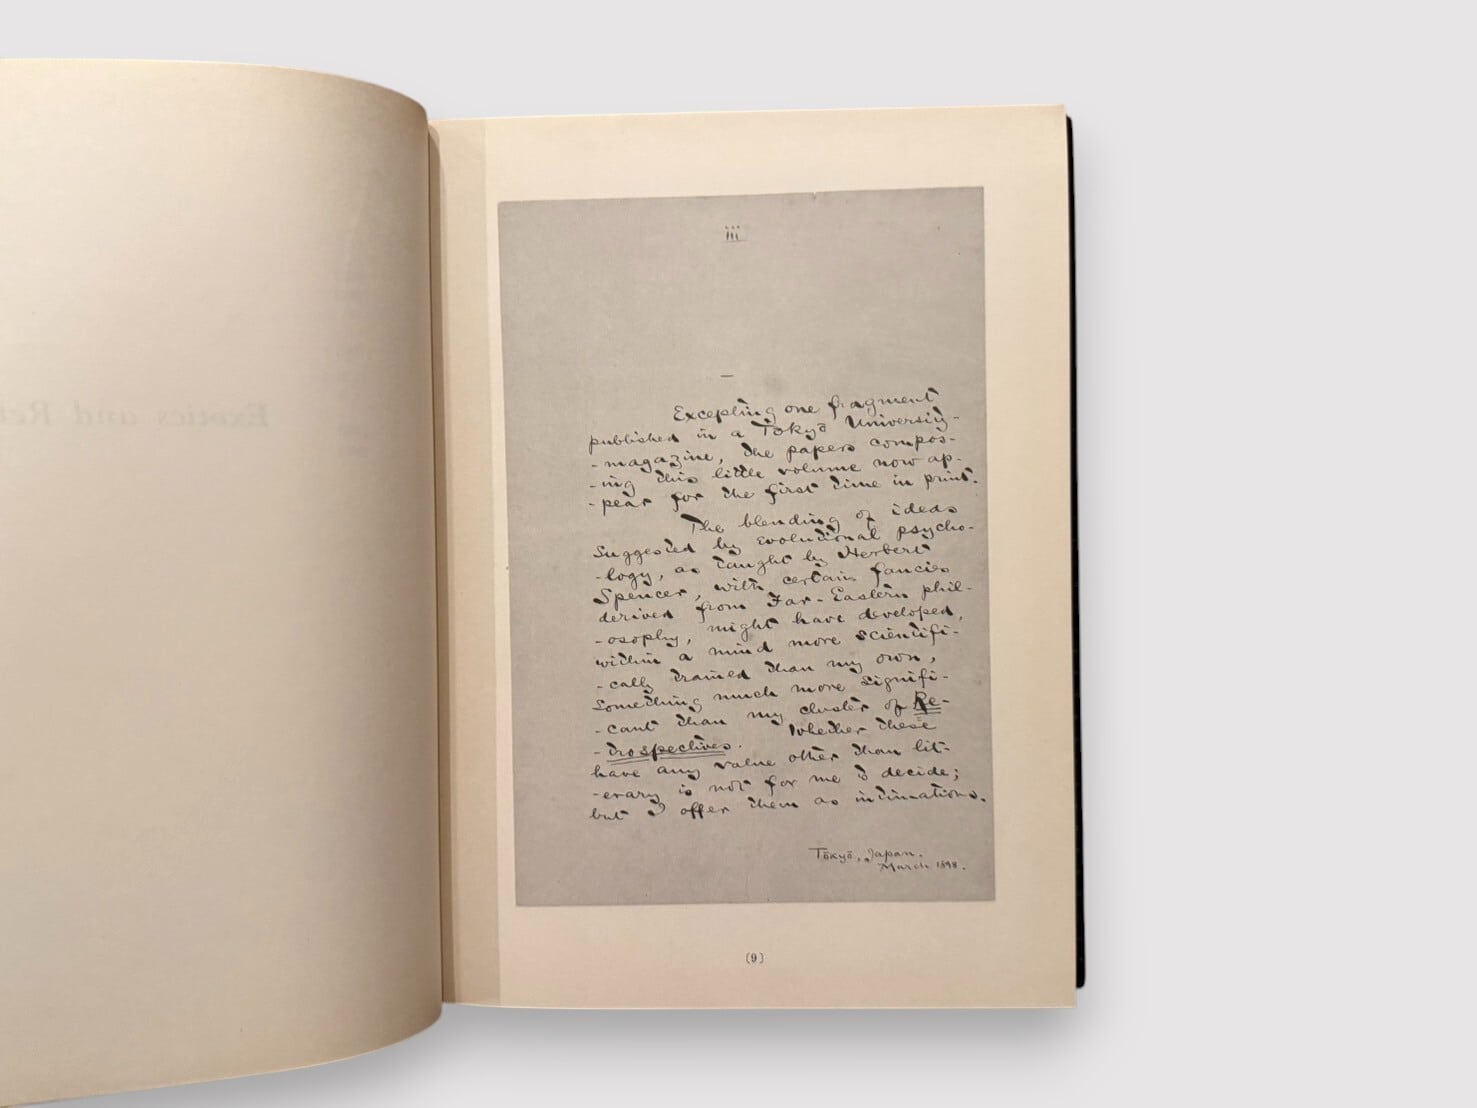 Exotics and Ret
iii
Excepting one fragment
published in a Tōkyō University-
-magazine, the papers compos-
-ing this little volume now ap-
-pear for the first time in print.
The blending of ideas
suggested by evolutional psycho-
-logy, as taught by Herbert
Spencer, with certain fancies
derived from Far-Eastern phil-
-osophy, might have developed,
within a mind more scientifi-
-cally trained than my own,
something much more signifi-
-cant than my cluster of Re-
-trospectives. Whether these
have any value other than lit-
-erary is not for me to decide;
but I offer them as intimations.
Tōkyō, Japan.
March 1898.
(9)